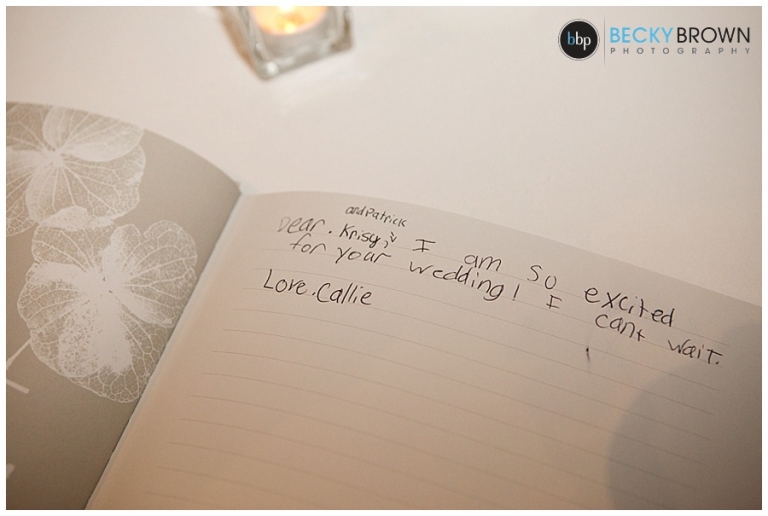 bbp BECKYBROWN
PHOTOGRAPHY
and Patrick
Dear. Krisy, I am so excited
for your wedding! I cant wait.
Love. Callie